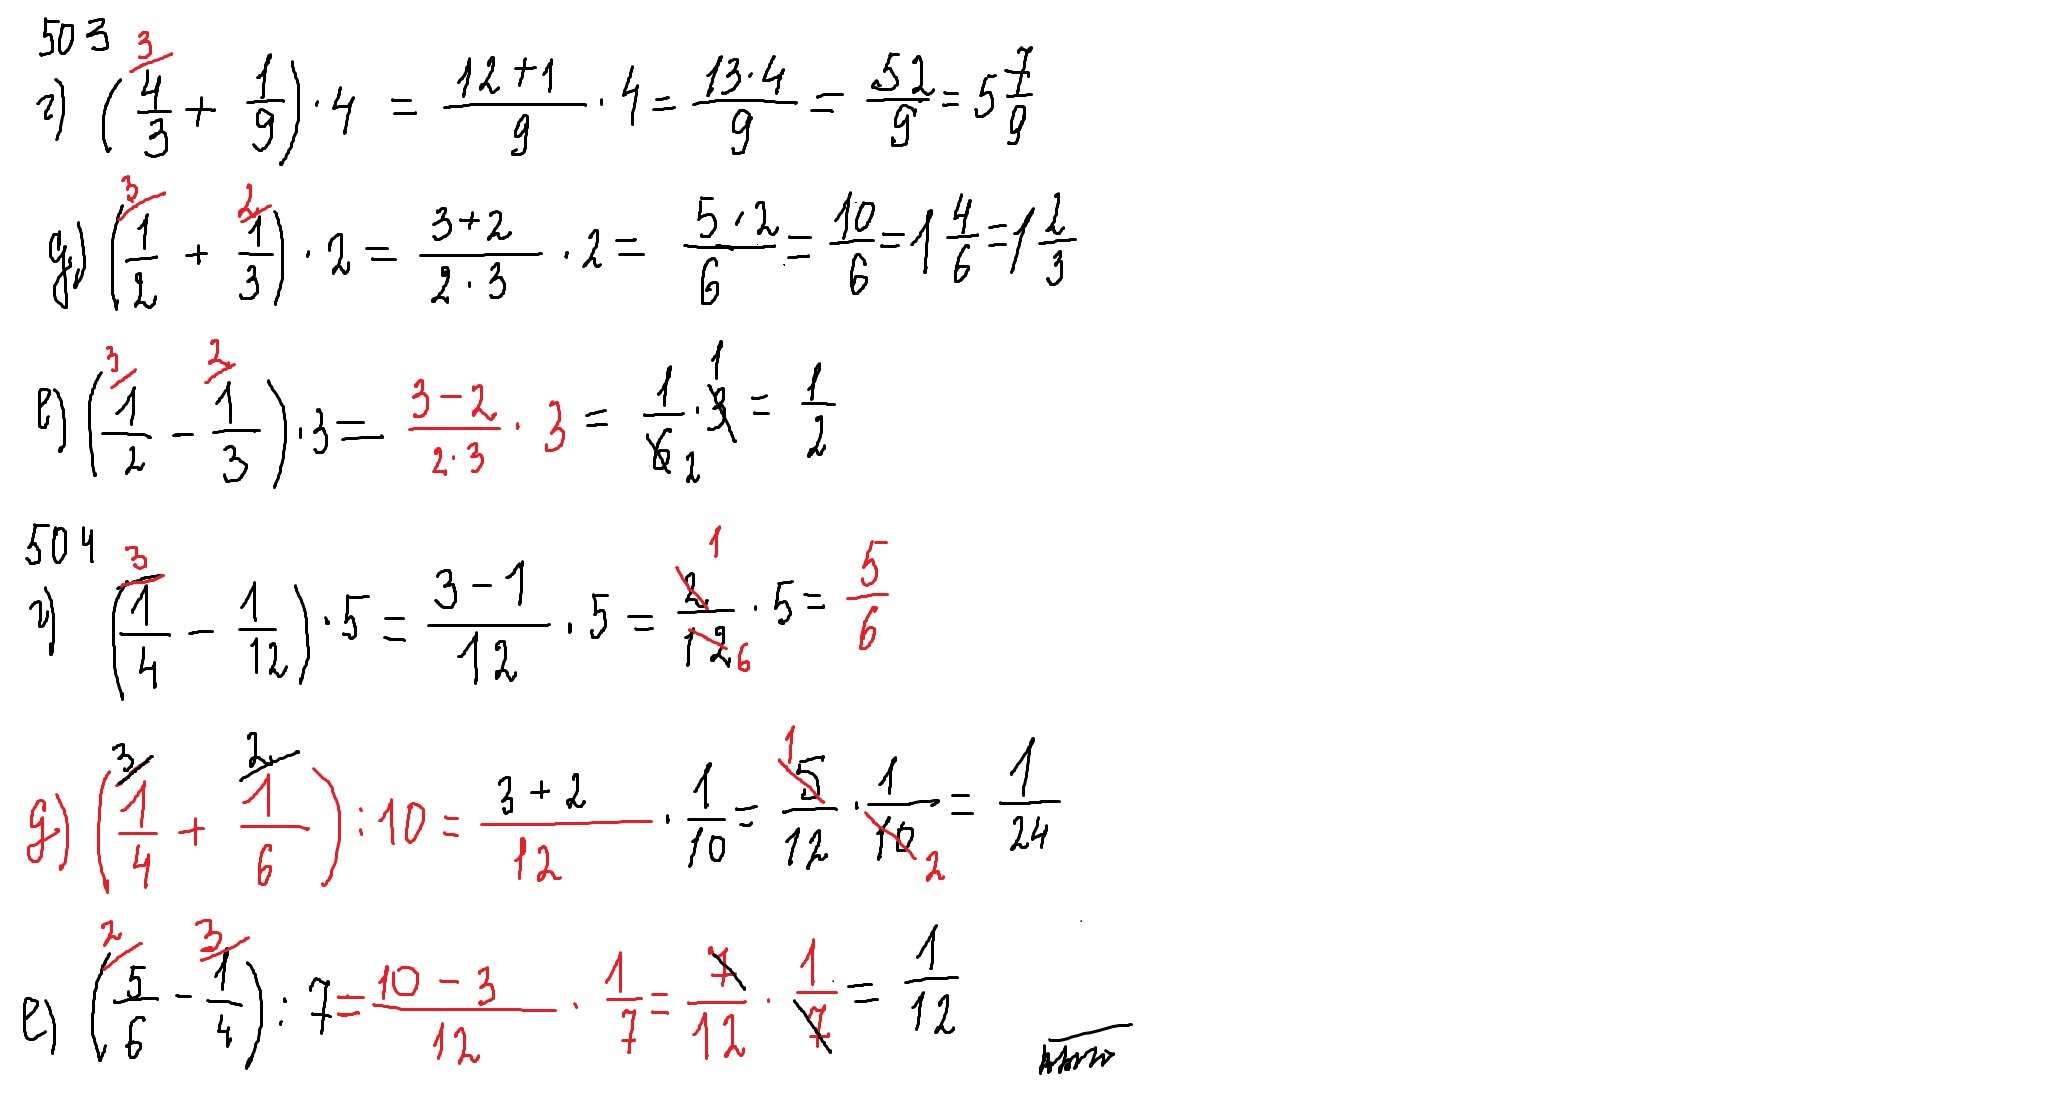 503
г) (4/3 + 1/9) · 4 = (12+1)/9 · 4 = (13·4)/9 = 52/9 = 5 7/9
д) (1/2 + 1/3) · 2 = (3+2)/(2·3) · 2 = (5·2)/6 = 10/6 = 1 4/6 = 1 2/3
е) (1/2 − 1/3) · 3 = (3−2)/(2·3) · 3 = 1/6 · 3 = 1/2
504
г) (1/4 − 1/12) · 5 = (3−1)/12 · 5 = 2/12 · 5 = 5/6
д) (1/4 + 1/6) : 10 = (3+2)/12 · 1/10 = 5/12 · 1/10 = 1/24
е) (5/6 − 1/4) : 7 = (10−3)/12 · 1/7 = 7/12 · 1/7 = 1/12